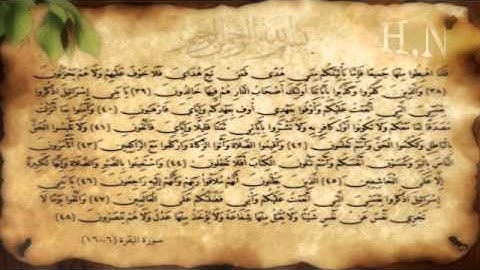 بسم الله الرحمن الرحيم
H.N
قلنا اهبطوا منها جميعا فإما يأتينكم مني هدى فمن تبع هداي فلا خوف عليهم ولا هم يحزنون
(٣٨) والذين كفروا وكذبوا بآياتنا أولئك أصحاب النار هم فيها خالدون (٣٩) يا بني إسرائيل اذكروا
نعمتي التي أنعمت عليكم وأوفوا بعهدي أوف بعهدكم وإياي فارهبون (٤٠) وآمنوا بما أنزلت
مصدقا لما معكم ولا تكونوا أول كافر به ولا تشتروا بآياتي ثمنا قليلا وإياي فاتقون (٤١) ولا تلبسوا الحق
بالباطل وتكتموا الحق وأنتم تعلمون (٤٢) وأقيموا الصلاة وآتوا الزكاة واركعوا مع الراكعين (٤٣) أتأمرون
الناس بالبر وتنسون أنفسكم وأنتم تتلون الكتاب أفلا تعقلون (٤٤) واستعينوا بالصبر والصلاة وإنها لكبيرة
إلا على الخاشعين (٤٥) الذين يظنون أنهم ملاقوا ربهم وأنهم إليه راجعون (٤٦) يا بني
إسرائيل اذكروا نعمتي التي أنعمت عليكم وأني فضلتكم على العالمين (٤٧) واتقوا يوما لا
تجزي نفس عن نفس شيئا ولا يقبل منها شفاعة ولا يؤخذ منها عدل ولا هم ينصرون (٤٨)
سورة البقرة